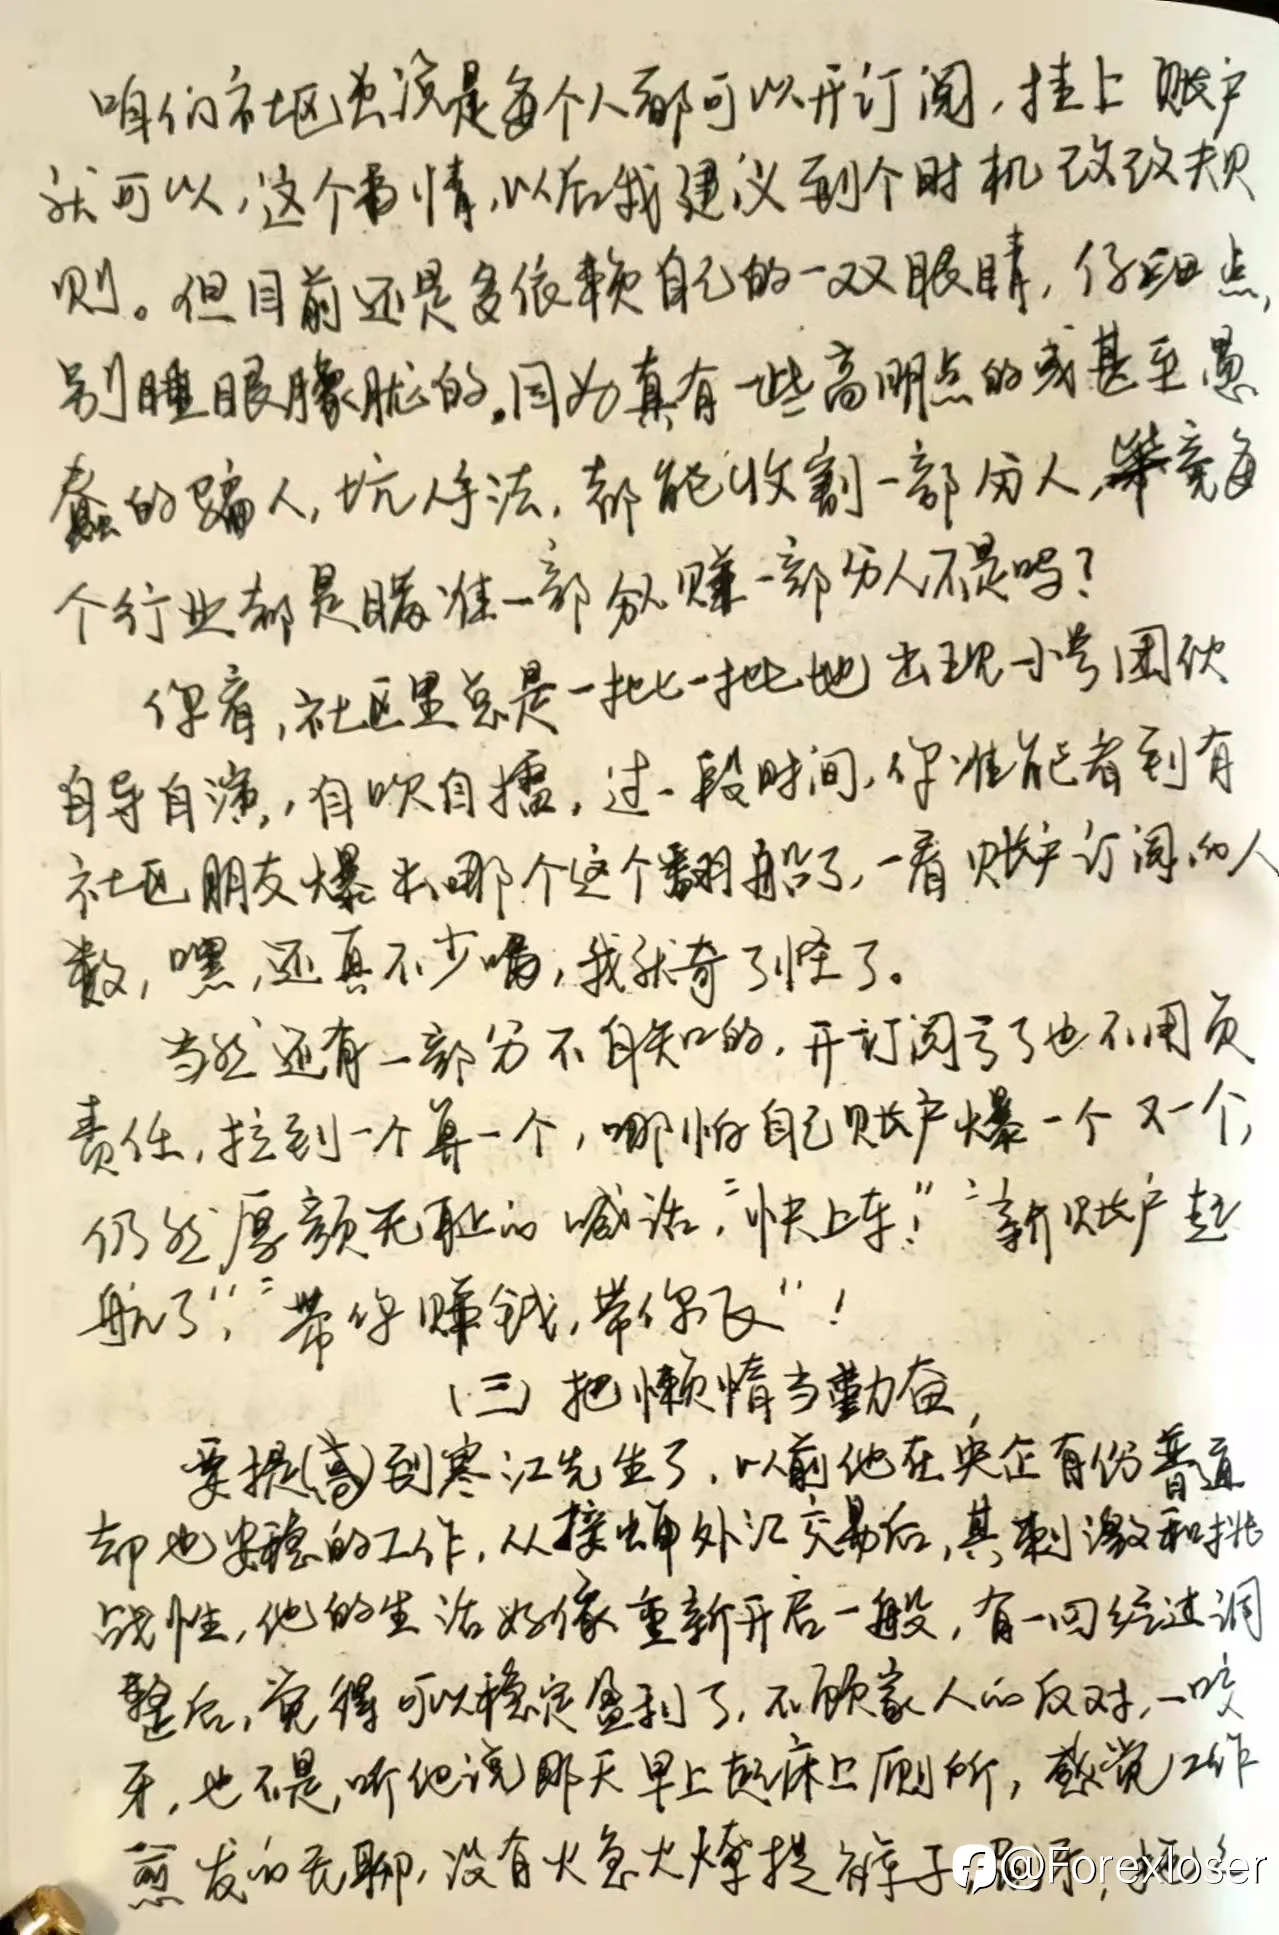 咱们社区虽说是每个人都可以开订阅，挂上账户
就可以，这个事情，以后我建议到个时机改改规
则。但目前还是多依赖自己的一双眼睛，仔细点，
别睡眼朦胧的。因为真有一些高明点的或甚至愚
蠢的骗人，坑人手法，都能收割一部分人，毕竟每
个行业都是瞄准一部分人赚一部分人不是吗？
你看，社区里总是一批一批地出现小号团伙
自导自演，自吹自擂，过一段时间，你准能看到有
社区朋友爆出哪个这个翻船了，一看账户订阅的人
数，嘿，还真不少嘞，我就奇了怪了。
当然还有一部分不自知的，开订阅亏了也不用负
责任，拉到一个算一个，哪怕自己账户爆一个又一个，
仍然厚颜无耻的喊话，“快上车！”“新账户起
航了”，“带你赚钱，带你飞”！
（三）把懒惰当勤奋
要提（高）到寒江先生了，以前他在央企有份普通
却也安稳的工作，从接触外汇交易后，其刺激和挑
战性，他的生活好像重新开启一般，有一回经过调
整后，觉得可以稳定盈利了，不顾家人的反对，一咬
牙，也不是，听他说那天早上起床上厕所，感觉工作
愈发的无聊，没有火急火燎提裤子
@Forexloser